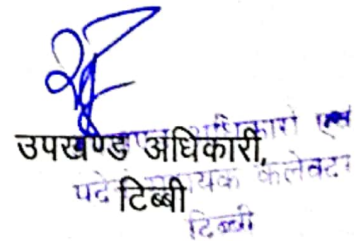 उपखण्ड अधिकारी,
टिब्बी
अधिकारी एवं
पदेन सहायक कलेक्टर
टिब्बी